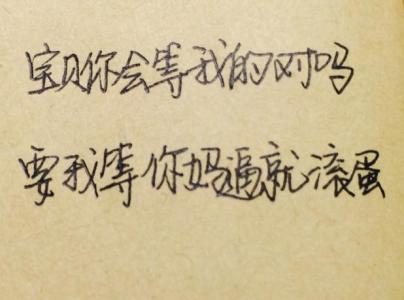 宝贝你会等我的对吗
要我等你妈逼就滚蛋